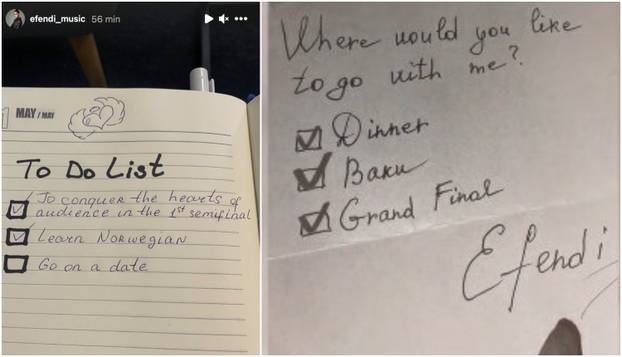 efendi_music 56 min
1 MAY / MAY
To Do List
To conquer the hearts of
audience in the 1st semifinal
Learn Norwegian
Go on a date
Where would you like
to go with me?
Dinner
Baku
Grand Final
Efendi